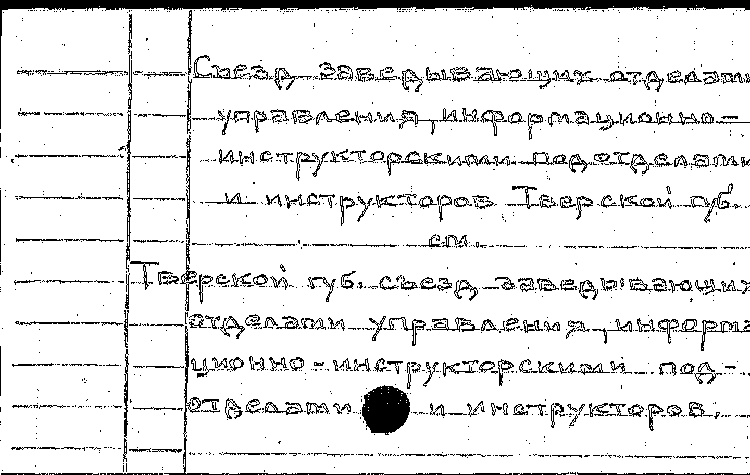 Съезд заведывающих отделами
управления, информационно-
инструкторскими подотделами
и инструкторов Тверской губ.
см.
Тверской губ. съезд заведывающих
отделами управления, информа
ционно-инструкторскими под-
отделами и инструкторов.